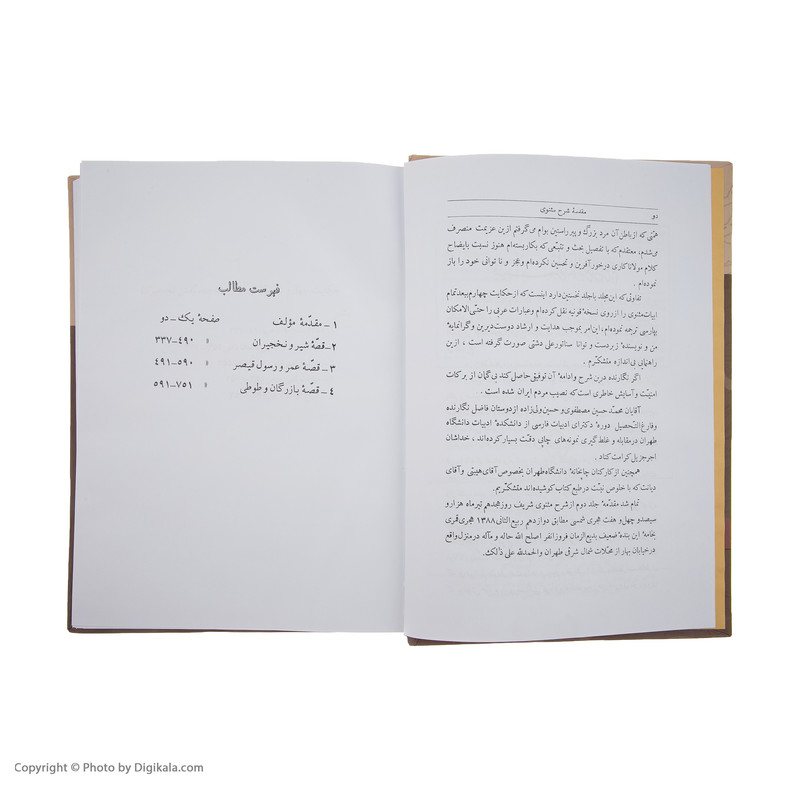 دو
مقدمهٔ شرح مثنوی
همّتی که از باطن آن مرد بزرگ و پیر راستین بوام می‌گرفتم ازین عزیمت منصرف
می‌شدم، معتقدم که با تفصیل بحث و تتبّعی که بکار بسته‌ام هنوز نسبت بایضاح
کلام مولانا کاری درخور آفرین و تحسین نکرده‌ام و عجز و نا توانی خود را باز
نموده‌ام .
تفاوتی که این مجلد با جلد نخستین دارد اینست که از حکایت چهارم ببعد تمام
ابیات مثنوی را از روی نسخهٔ قونیه نقل کرده‌ام و عبارات عربی را حتّی الامکان
بپارسی ترجمه نموده‌ام، این امر بموجب هدایت و ارشاد دوست دیرین و گرانمایهٔ
من و نویسندهٔ زبردست و توانا سناتور علی دشتی صورت گرفته است ، ازین
راهنمایی بی‌اندازه متشکّرم .
اگر نگارنده درین شرح و ادامهٔ آن توفیقی حاصل کند بی‌گمان از برکات
امنیّت و آسایش خاطری است که نصیب مردم ایران شده است .
آقایان محمّد حسین مصطفوی و حسین ولی‌زاده از دوستان فاضل نگارنده
و فارغ التّحصیل دورهٔ دکترای ادبیات فارسی از دانشکدهٔ ادبیات دانشگاه
طهران در مقابله و غلط گیری نمونه‌های چاپی دقّت بسیار کرده‌اند ، خداشان
اجر جزیل کرامت کناد .
همچنین از کارکنان چاپخانهٔ دانشگاه طهران بخصوص آقای هیبتی و آقای
دیانت که با خلوص نیّت در طبع کتاب کوشیده‌اند متشکّریم.
تمام شد مقدّمهٔ جلد دوم از شرح مثنوی شریف روز هجدهم تیر ماه هزار و
سیصد و چهل و هفت هجری شمسی مطابق دوازدهم ربیع الثانی ۱۳۸۸ هجری قمری
بخامهٔ این بندهٔ ضعیف بدیع الزمان فروزانفر اصلح الله حاله و مآله در منزل واقع
در خیابان بهار از محلات شمال شرقی طهران والحمدلله علی ذلک.
فهرست مطالب
۱ – مقدّمهٔ مؤلف صفحهٔ یک – دو
۲– قصّهٔ شیر و نخجیران » ۳۳۷–۴۹۰
۳ – قصّهٔ عمر و رسول قیصر » ۴۹۱–۵۹۰
۴ – قصّهٔ بازرگان و طوطی » ۵۹۱–۷۵۱
Copyright © Photo by Digikala.com